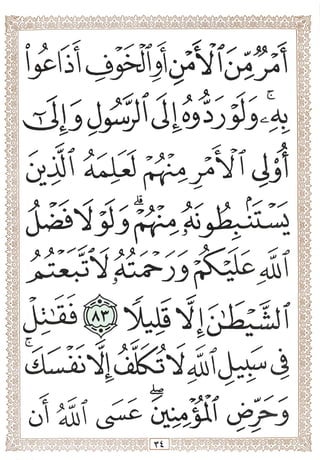 أَمْرٌ مِّنَ ٱلْأَمْنِ أَوِ ٱلْخَوْفِ أَذَاعُوا۟
بِهِۦ ۖ وَلَوْ رَدُّوهُ إِلَى ٱلرَّسُولِ وَإِلَىٰٓ
أُو۟لِى ٱلْأَمْرِ مِنْهُمْ لَعَلِمَهُ ٱلَّذِينَ
يَسْتَنۢبِطُونَهُۥ مِنْهُمْ ۗ وَلَوْلَا فَضْلُ
ٱللَّهِ عَلَيْكُمْ وَرَحْمَتُهُۥ لَٱتَّبَعْتُمُ
ٱلشَّيْطَـٰنَ إِلَّا قَلِيلًا ٨٣ فَقَـٰتِلْ
فِى سَبِيلِ ٱللَّهِ لَا تُكَلَّفُ إِلَّا نَفْسَكَ ۚ
وَحَرِّضِ ٱلْمُؤْمِنِينَ ۖ عَسَى ٱللَّهُ أَن
٣٤